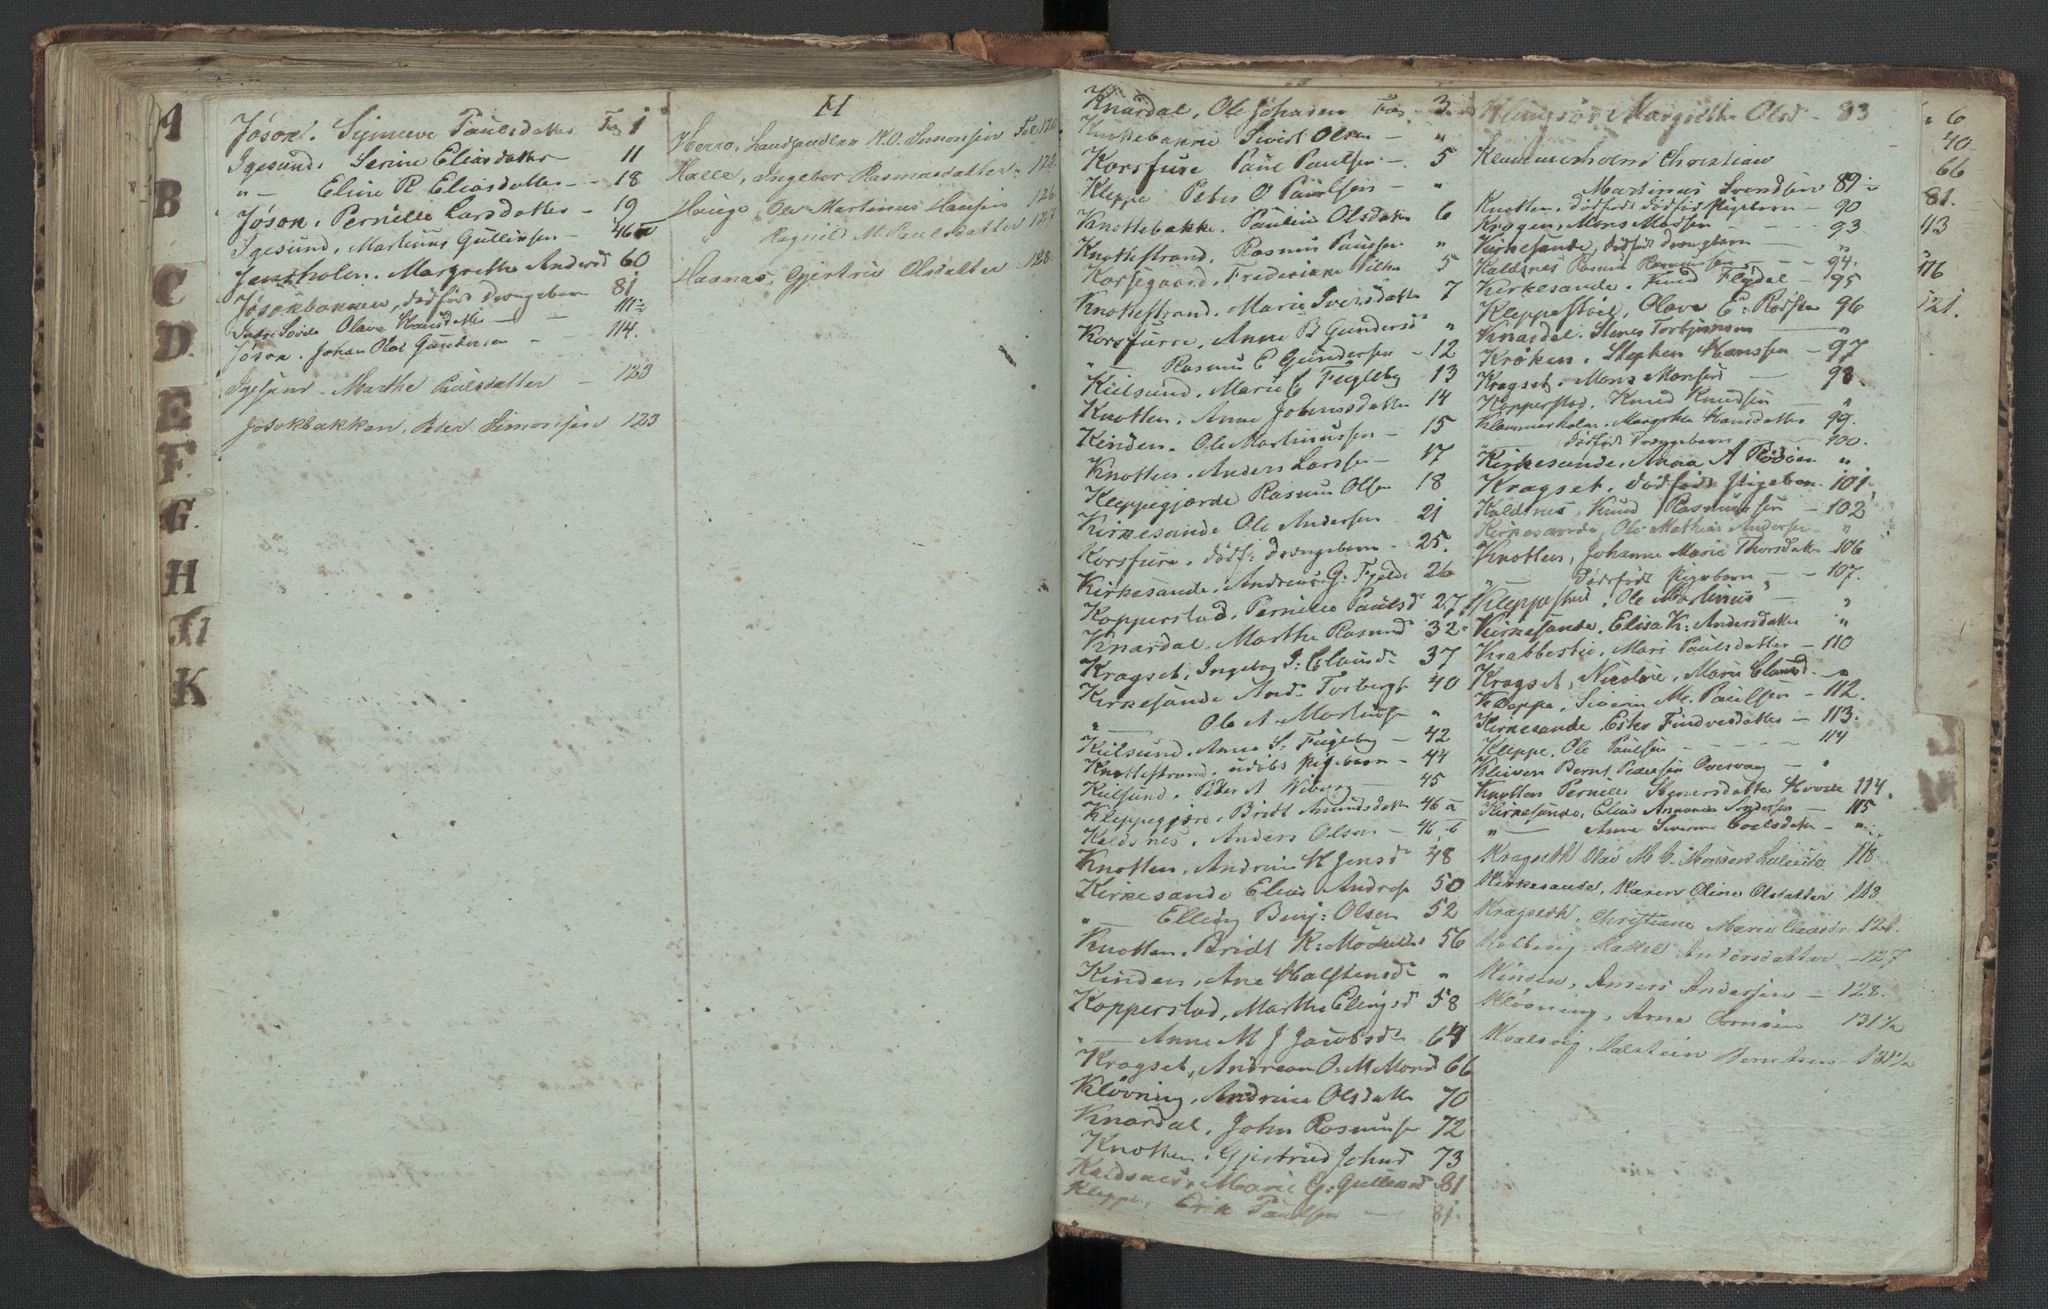 A
B
C
D
E
F
G
H
K
Jósok. Synneve Paulsdatter 1
Igesund. Serine Eliasdatter 11
" Eline R Eliasdatter - 18
Jósok, Pernille Larsdatter - 19
Igesund, Martinus Gullicksen - 46
Jensholm. Margrethe Andersd 60
Jósokbakken, dödfödt Drengebarn 81
Olave Hansdatter 111½
Jósok. Johan Olai Gundersen - 114.
Igesund Marthe Paulsdatter - 123
Jösokbakken, Peter Simonsen 123
H
Herrö, Landhandler N. O. Simonsen Fol 120
Halle, Ingebor Rasmusdatter 122
Hauge, Ole Martinus Hansen 126
" Ragnild M. Paulsdatter 127
Haanas, Gjertrud Olsdatter 128
Knardal, Ole Johnsen 3
Knottebakke Sivert Olsen "
Korsfure Paul Paulsen - 5
Kleppe Peter O Paulsen - "
Knottebakke. Pauline Olsdatter 6
Knottestrand, Rasmus Paulsen "
Korsegaard, Frederikke 5
Knottestrand. Marie Iversdatter 7
Korsfurre, Anne B Gundersd "
Rasmus E Gundersen - 12
Kielsund, Marie E Fugleby 13
Knotten. Anne Johansdatter 14
Kinden. Ole Martinussen - 15
Knotten. Anders Larsen - 17
Kleppegjærde Rasmus Olsen 18
Kirkesande Ole Andersen 21
Korsfure, dödf: Drengebarn - 25.
Kirkesande, Andreas G: Fjelde 26
Kopperstad, Pernille Paulsd 27
Knardal. Marthe Rasmusd 32
Kragset, Ingebog J: Clausd 37
Kirkesande And: Torbergs 40
" Ole A. Martinus "
Kilsund. Anne S. Fugleby - 42
Knottestrand. udöbt Pigebarn - 44
Kielsund, Peter A Wiborg - 45
Kleppegjære, Bridt Amundsdatter 46 a
Kaldsnes, Anders Olsen - 46 b
Knotten, Andrine K Jensd 48
Kirkesande Elias Andreas 50
" Elling Benj: Olsen 52
Knotten. Bridt K: 56
Kinden, Ane Halstensd "
Kopperstad, Marthe Elingsd 58
" Anne M J Jacobsd 64
Kragset, Andreas O. M Monsd 66
Klövning, Andrine Olsdatter 70
Knardal, John Rasmusen 72
Knotten. Gjertrud Johnsd 73
Kaldsnes, Marie G: Gulleksd 81
Kleppe, Erik Paulsen - 81.
Klungsör Margrethe Olsd - 83
Klammerholm Christian
Martinus Svendsen 89½
Knotten, dödfödt Pigebarn - 90
Kragen, Mons Monsen 93.
Kirkesande, dödfödt Drengebarn "
Kaldsnes Rasmus Rasmussen - 94.
Kirkesande. Knud Flydal - 95
Kleppestöl, Olave E: 96
Knardal. Stener Torbjörnsen "
Kroken, Stephen Hanssen - 97
Kragset. Mons Monsen 98.
Kopperstad. Knud Knudsen "
Klammerholm. Margrethe Hansdatter 99.
" dödfödt Drengebarn 100.
Kirkesande, Anna A Rödsen "
Kragset, dödfödt Pigebarn 101
Kaldsnes, Knud Rasmussen - 102
Kirkesande, Ole Mathias Andersen "
Knotten, Johanne Marie Thorsdatter 106
" Dödfödt Pigebarn - 107.
Kleppestad, Ole Martinus - "
Kirkesande, Elisa K: Andersdatter "
Krabbestie, Mari Paulsdatter - 110
Kragset, Nicoline, Marie Clausd "
Kleppe, Siverin M. Paulsen - 112.
Kirkesande Ester Findvedsdatter - 113.
Kleppe. Ole Paulsen - 114
Kleiven Bernt Pedersen - "
Knotten Pernille Stenersdatter 114.
Kirkesande, Elias Andersen 115
" Anne - "
Kragseth Olai M. G. Monsen 118
Kirkesande, Karen Oline Olsdatter 123
Kragseth. Christiane Marie Clausdr 124.
Kolbeвig Rakel Andersdatter - 127
Kinden, Anders Andersen - 128.
Klövning, Arne 131½
Kvalsvig, Halstein Berntsen 131½
6
40
66
81.
93
116
121.
L
M